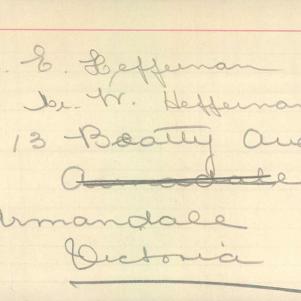 . E. Heffernan
W. Heffernan
13 Beatty Ave
Armadale
Armandale
Victoria